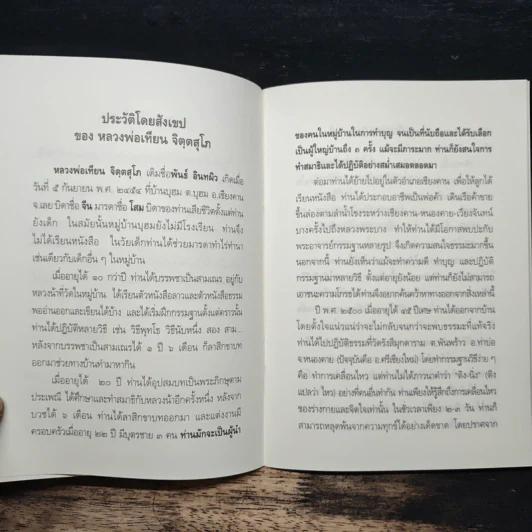 ประวัติโดยสังเขป
ของ หลวงพ่อเทียน จิตฺตสุโภ
หลวงพ่อเทียน จิตฺตสุโภ เดิมชื่อพันธ์ อินทผิว เกิดเมื่อ
วันที่ ๕ กันยายน พ.ศ. ๒๔๕๔ ที่บ้านบุฮม ต.บุฮม อ.เชียงคาน
จ.เลย บิดาชื่อ จีน มารดาชื่อ โสม บิดาของท่านเสียชีวิตตั้งแต่ท่าน
ยังเด็ก ในสมัยนั้นหมู่บ้านบุฮมยังไม่มีโรงเรียน ท่านจึง
ไม่ได้เรียนหนังสือ ในวัยเด็กท่านได้ช่วยมารดาทำไร่ทำนา
เช่นเดียวกับเด็กอื่น ๆ ในหมู่บ้าน
เมื่ออายุได้ ๑๐ กว่าปี ท่านได้บรรพชาเป็นสามเณร อยู่กับ
หลวงน้าที่วัดในหมู่บ้าน ได้เรียนตัวหนังสือลาวและตัวหนังสือธรรม
พออ่านออกและเขียนได้บ้าง และได้เริ่มฝึกกรรมฐานตั้งแต่คราวนั้น
ท่านได้ปฏิบัติหลายวิธี เช่น วิธีพุทโธ วิธีนับหนึ่ง สอง สาม...
หลังจากบรรพชาเป็นสามเณรได้ ๑ ปี ๖ เดือน ก็ลาสิกขาบท
ออกมาช่วยทางบ้านทำมาหากิน
เมื่ออายุได้ ๒๐ ปี ท่านได้อุปสมบทเป็นพระภิกษุตาม
ประเพณี ได้ศึกษาและทำสมาธิกับหลวงน้าอีกครั้งหนึ่ง หลังจาก
บวชได้ ๖ เดือน ท่านได้ลาสิกขาบทออกมา และแต่งงานมี
ครอบครัวเมื่ออายุ ๒๒ ปี มีบุตรชาย ๓ คน ท่านมักจะเป็นผู้นำ
ของคนในหมู่บ้านในการทำบุญ จนเป็นที่นับถือและได้รับเลือก
เป็นผู้ใหญ่บ้านถึง ๓ ครั้ง แม้จะมีภาระมาก ท่านก็ยังสนใจการ
ทำสมาธิและได้ปฏิบัติอย่างสม่ำเสมอตลอดมา
ต่อมาท่านได้ย้ายไปอยู่ในตัวอำเภอเชียงคาน เพื่อให้ลูกได้
เรียนหนังสือ ท่านได้ประกอบอาชีพเป็นพ่อค้า เดินเรือค้าขาย
ขึ้นล่องตามลำน้ำโขงระหว่างเชียงคาน-หนองคาย-เวียงจันทน์
บางครั้งไปถึงหลวงพระบาง ทำให้ท่านได้มีโอกาสพบปะกับ
พระอาจารย์กรรมฐานหลายรูป จึงเกิดความสนใจธรรมะมากขึ้น
นอกจากนี้ ท่านยังเห็นว่าแม้จะทำความดี ทำบุญ และปฏิบัติ
กรรมฐานมาหลายวิธี ตั้งแต่อายุยังน้อย แต่ท่านก็ยังไม่สามารถ
เอาชนะความโกรธได้ท่านจึงอยากค้นคว้าหาทางออกจากสิ่งเหล่านี้
ปี พ.ศ. ๒๕๐๐ เมื่ออายุได้ ๔๕ ปีเศษ ท่านได้ออกจากบ้าน
โดยตั้งใจแน่วแน่ว่าจะไม่กลับจนกว่าจะพบธรรมะที่แท้จริง
ท่านได้ไปปฏิบัติธรรมที่วัดรังสีมุกดาราม ต.พันพร้าว อ.ท่าบ่อ
จ.หนองคาย (ปัจจุบันคือ อ.ศรีเชียงใหม่) โดยทำกรรมฐานวิธีง่าย ๆ
คือ ทำการเคลื่อนไหว แต่ท่านไม่ได้ภาวนาคำว่า "ติง-นิ่ง" (ติง
แปลว่า ไหว) อย่างที่คนอื่นทำกัน ท่านเพียงให้รู้สึกถึงการเคลื่อนไหว
ของร่างกายและจิตใจเท่านั้น ในชั่วเวลาเพียง ๒-๓ วัน ท่านก็
สามารถหลุดพ้นจากความทุกข์ได้อย่างเด็ดขาด โดยปราศจาก